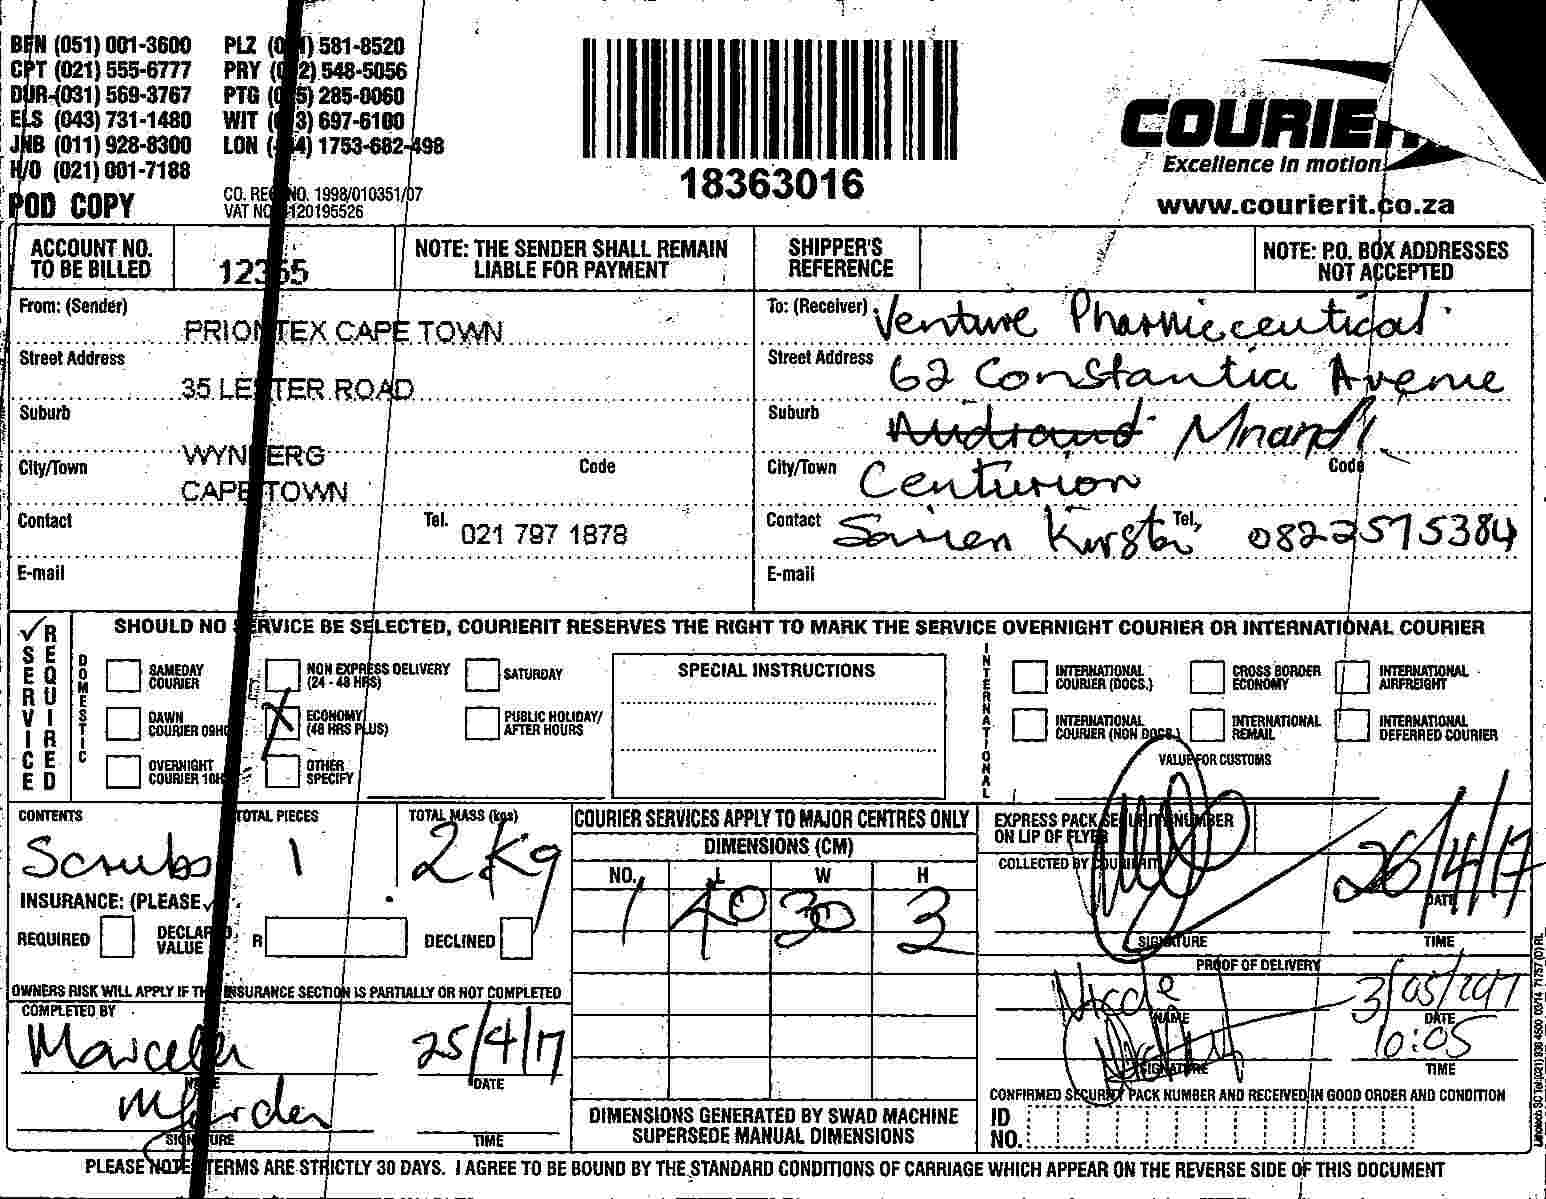 BFN (051) 001-3600 PLZ (0 1) 581-8520
CPT (021) 555-6777 PRY (0 2) 548-5056
DUR (031) 569-3767 PTG (0 5) 285-0060
ELS (043) 731-1480 WIT (0 3) 697-6100
JNB (011) 928-8300 LON ( 44) 1753-682-498
H/O (021) 001-7188
POD COPY
CO. REG NO. 1998/010351/07
VAT NO 120195526
18363016
COURIERIT
Excellence in motion
www.courierit.co.za
ACCOUNT NO. TO BE BILLED
12365
NOTE: THE SENDER SHALL REMAIN LIABLE FOR PAYMENT
SHIPPER'S REFERENCE
NOTE: P.O. BOX ADDRESSES NOT ACCEPTED
From: (Sender) PRIONTEX CAPE TOWN
Street Address 35 LESTER ROAD
Suburb WYNBERG
City/Town CAPE TOWN Code
Contact Tel. 021 797 1878
E-mail
To: (Receiver) Venture Pharmiceutical
Street Address 62 Constantia Avenue
Suburb Midrand Mnandi
City/Town Centurion Code
Contact Tel. 0822575384
E-mail
SERVICE REQUIRED
SHOULD NO SERVICE BE SELECTED, COURIERIT RESERVES THE RIGHT TO MARK THE SERVICE OVERNIGHT COURIER OR INTERNATIONAL COURIER
DOMESTIC
SAMEDAY COURIER
NON EXPRESS DELIVERY (24 - 48 HRS)
SATURDAY
DAWN COURIER 09H0
ECONOMY (48 HRS PLUS)
PUBLIC HOLIDAY/ AFTER HOURS
OVERNIGHT COURIER 10H
OTHER SPECIFY
SPECIAL INSTRUCTIONS
INTERNATIONAL
INTERNATIONAL COURIER (DOCS.)
CROSS BORDER ECONOMY
INTERNATIONAL AIRFREIGHT
INTERNATIONAL COURIER (NON DOCS.)
INTERNATIONAL REMAIL
INTERNATIONAL DEFERRED COURIER
VALUE FOR CUSTOMS
CONTENTS TOTAL PIECES TOTAL MASS (kgs)
Scrubs 1 2 kg
INSURANCE: (PLEASE
REQUIRED DECLARED VALUE R DECLINED
OWNERS RISK WILL APPLY IF THE INSURANCE SECTION IS PARTIALLY OR NOT COMPLETED
COMPLETED BY
25/4/17
NAME DATE
SIGNATURE TIME
COURIER SERVICES APPLY TO MAJOR CENTRES ONLY
DIMENSIONS (CM)
NO. L W H
1 40 30 3
DIMENSIONS GENERATED BY SWAD MACHINE
SUPERSEDE MANUAL DIMENSIONS
EXPRESS PACK SECURITY NUMBER ON LIP OF FLYER
COLLECTED BY COURIERIT
26/4/17
DATE
SIGNATURE TIME
PROOF OF DELIVERY
Nicole 3/05/2017
NAME DATE
10:05
SIGNATURE TIME
CONFIRMED SECURITY PACK NUMBER AND RECEIVED IN GOOD ORDER AND CONDITION
ID NO.
PLEASE NOTE: TERMS ARE STRICTLY 30 DAYS. I AGREE TO BE BOUND BY THE STANDARD CONDITIONS OF CARRIAGE WHICH APPEAR ON THE REVERSE SIDE OF THIS DOCUMENT